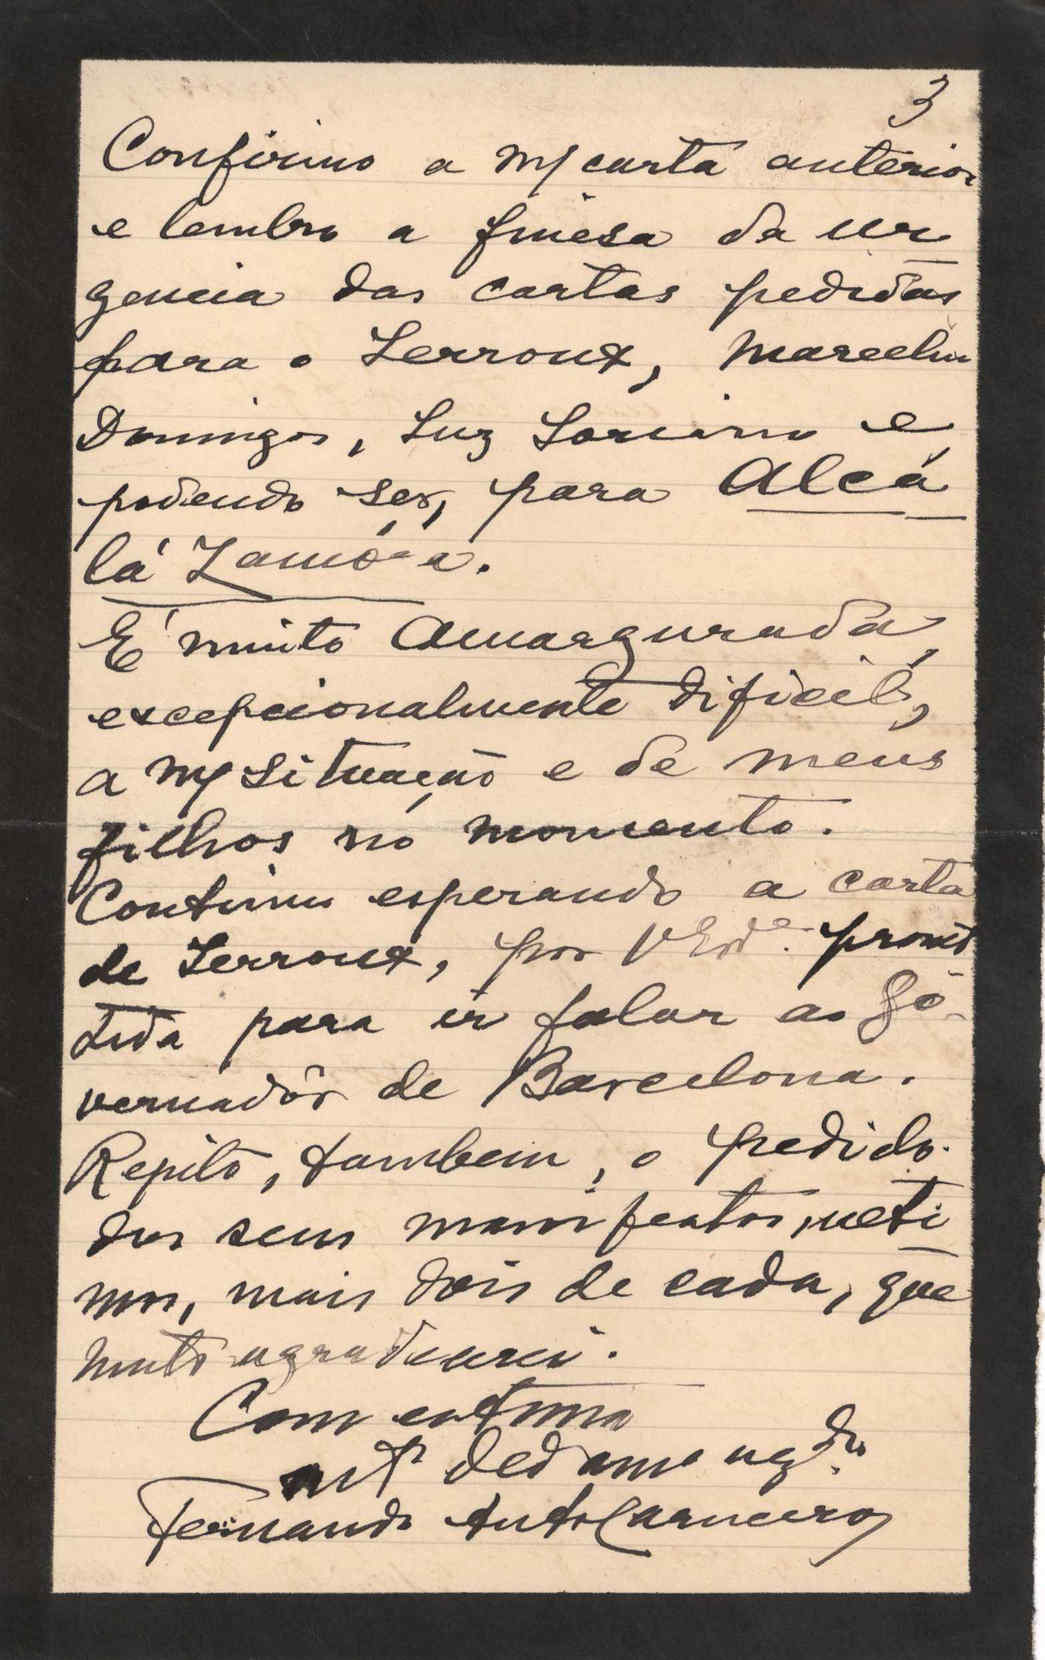 3
Confirmo a m/ carta anterior
e lembro a finesa da ur
gencia das cartas pedidas
para o Lerroux, Marcelino
Domingos, Luz e
podendo ser, para Alcá
lá Zamóra.
É muito amargurada,
excepcionalmente dificil,
a m/ situação e de meus
filhos nó momento.
Continuo esperando a carta
de Lerroux, por V. Exª. prome
tida para ir falar ao Gô
vernadôr de Barcelona.
Repito, tambem, o pedido
dos seus manifestos, ulti
mos, mais dois de cada, que
muito agradecerei.
Com estima
mtº ded amº agdº.
Fernando Carneiro